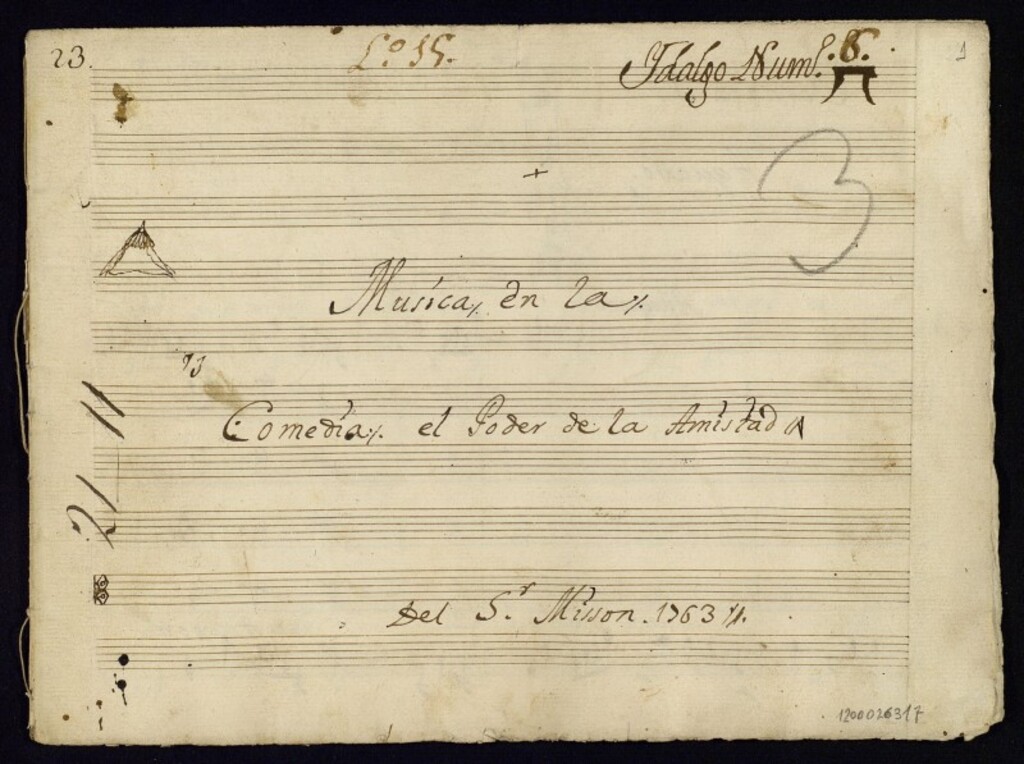 23.
L.º 15.
Ydalgo Numº. 6.
1
3
Musica en la
Comedia el Poder de la Amistad
Del S.r Misson. 1763
1200026317